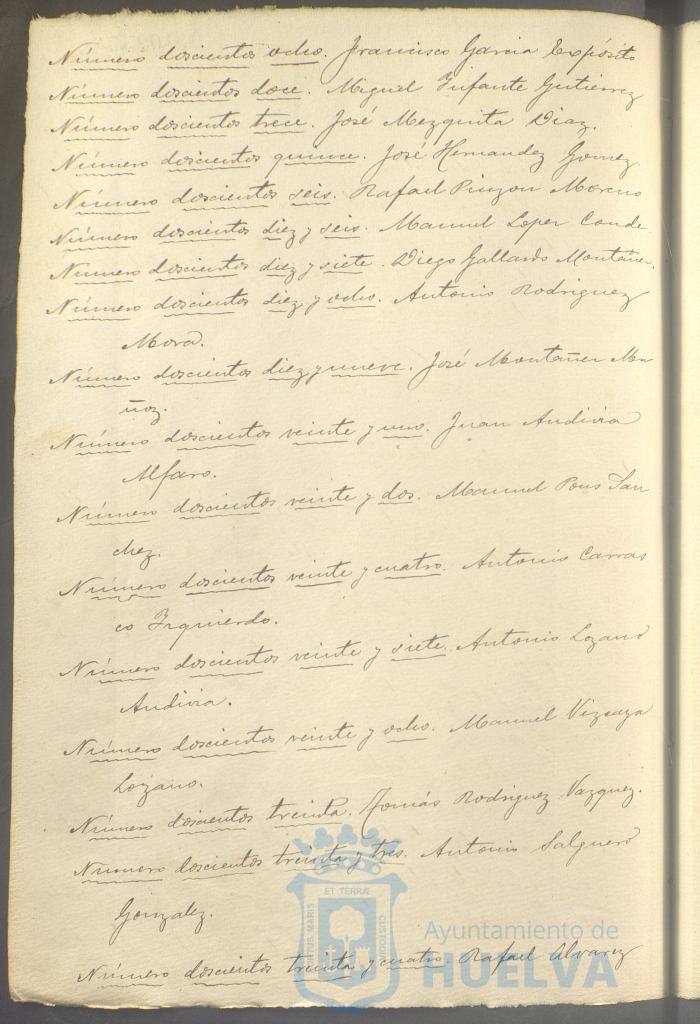 Número doscientos ocho. Francisco Garcia Expósito
Número doscientos doce. Miguel Infante Gutierrez
Número doscientos trece. José Mezquita Diaz.
Número doscientos quince. José Hernandez Gomez
Número doscientos seis. Rafael Pinzon Moreno
Número doscientos diez y seis. Manuel Loper Conde.
Número doscientos diez y siete. Diego Gallardo Montañer.
Número doscientos diez y ocho. Antonio Rodriguez
Mora.
Número doscientos diez y nueve. José Montañer Mu
ñoz.
Número doscientos veinte y uno. Juan Andivia
Alfaro.
Número doscientos veinte y dos. Manuel Pons San
chez.
Número doscientos veinte y cuatro. Antonio Carras
co Izquierdo.
Número doscientos veinte y siete. Antonio Lozano
Andivia.
Número doscientos veinte y ocho. Manuel Vizcaya
Lozano.
Número doscientos treinta. Tomás Rodriguez Vazquez.
Número doscientos treinta y tres. Antonio Salguero
Gonzalez.
Número doscientos treinta y cuatro. Rafael Alvarez
PORTUS MARIS ET TERRÆ CUSTODIA
Ayuntamiento de
HUELVA